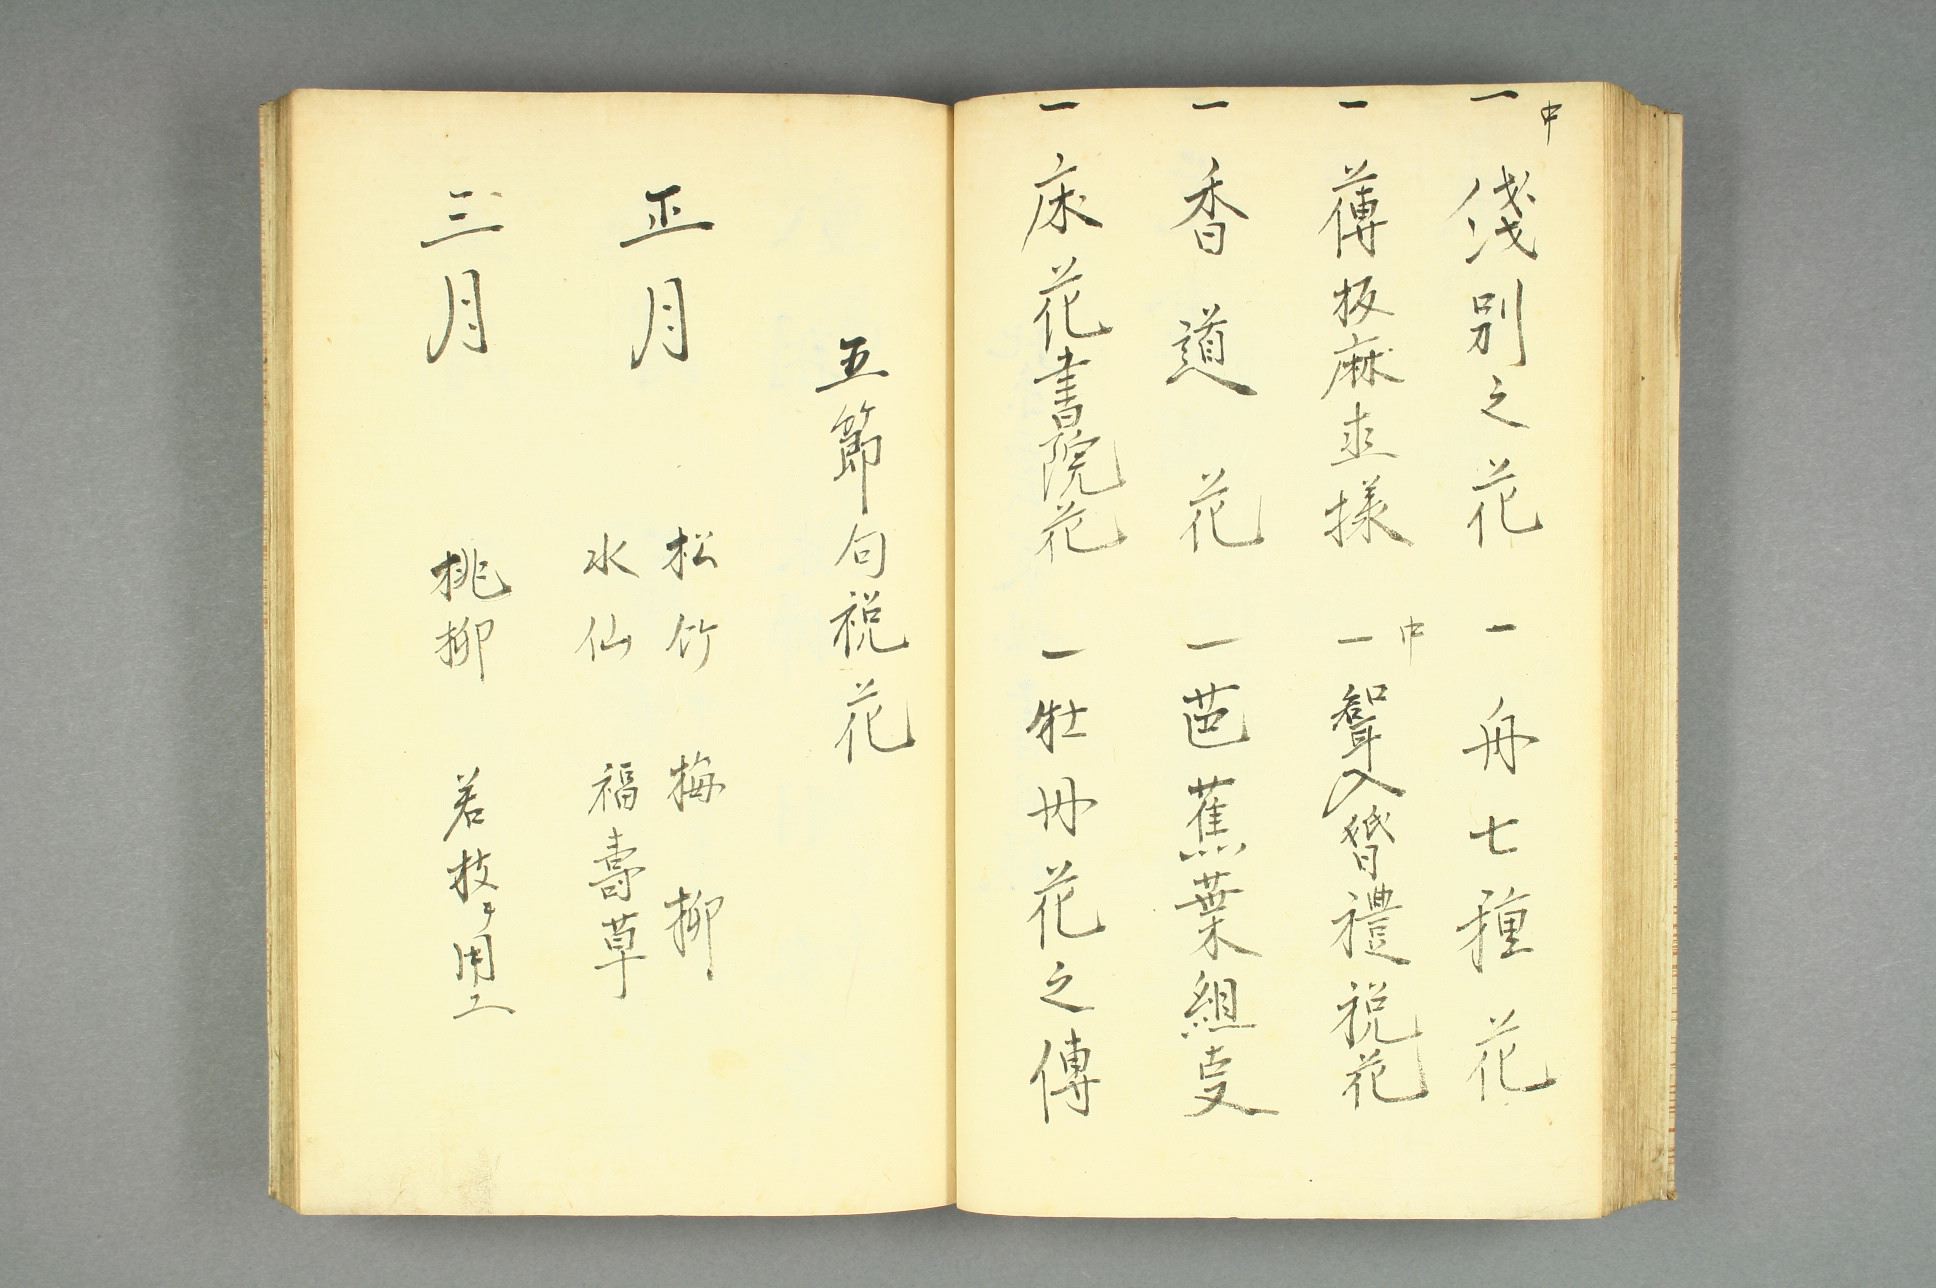 中
一 俴別之花 一 舟七種花
中
一 薄板麻様 一 聟入禮祝花
一 香道花 一 芭蕉葉組叓
一 床花書院花 一 牡丹花之傳
五節句祝花
正月 松竹 梅 柳
水仙 福壽草
三月 桃柳 若枝ヲ用ユ